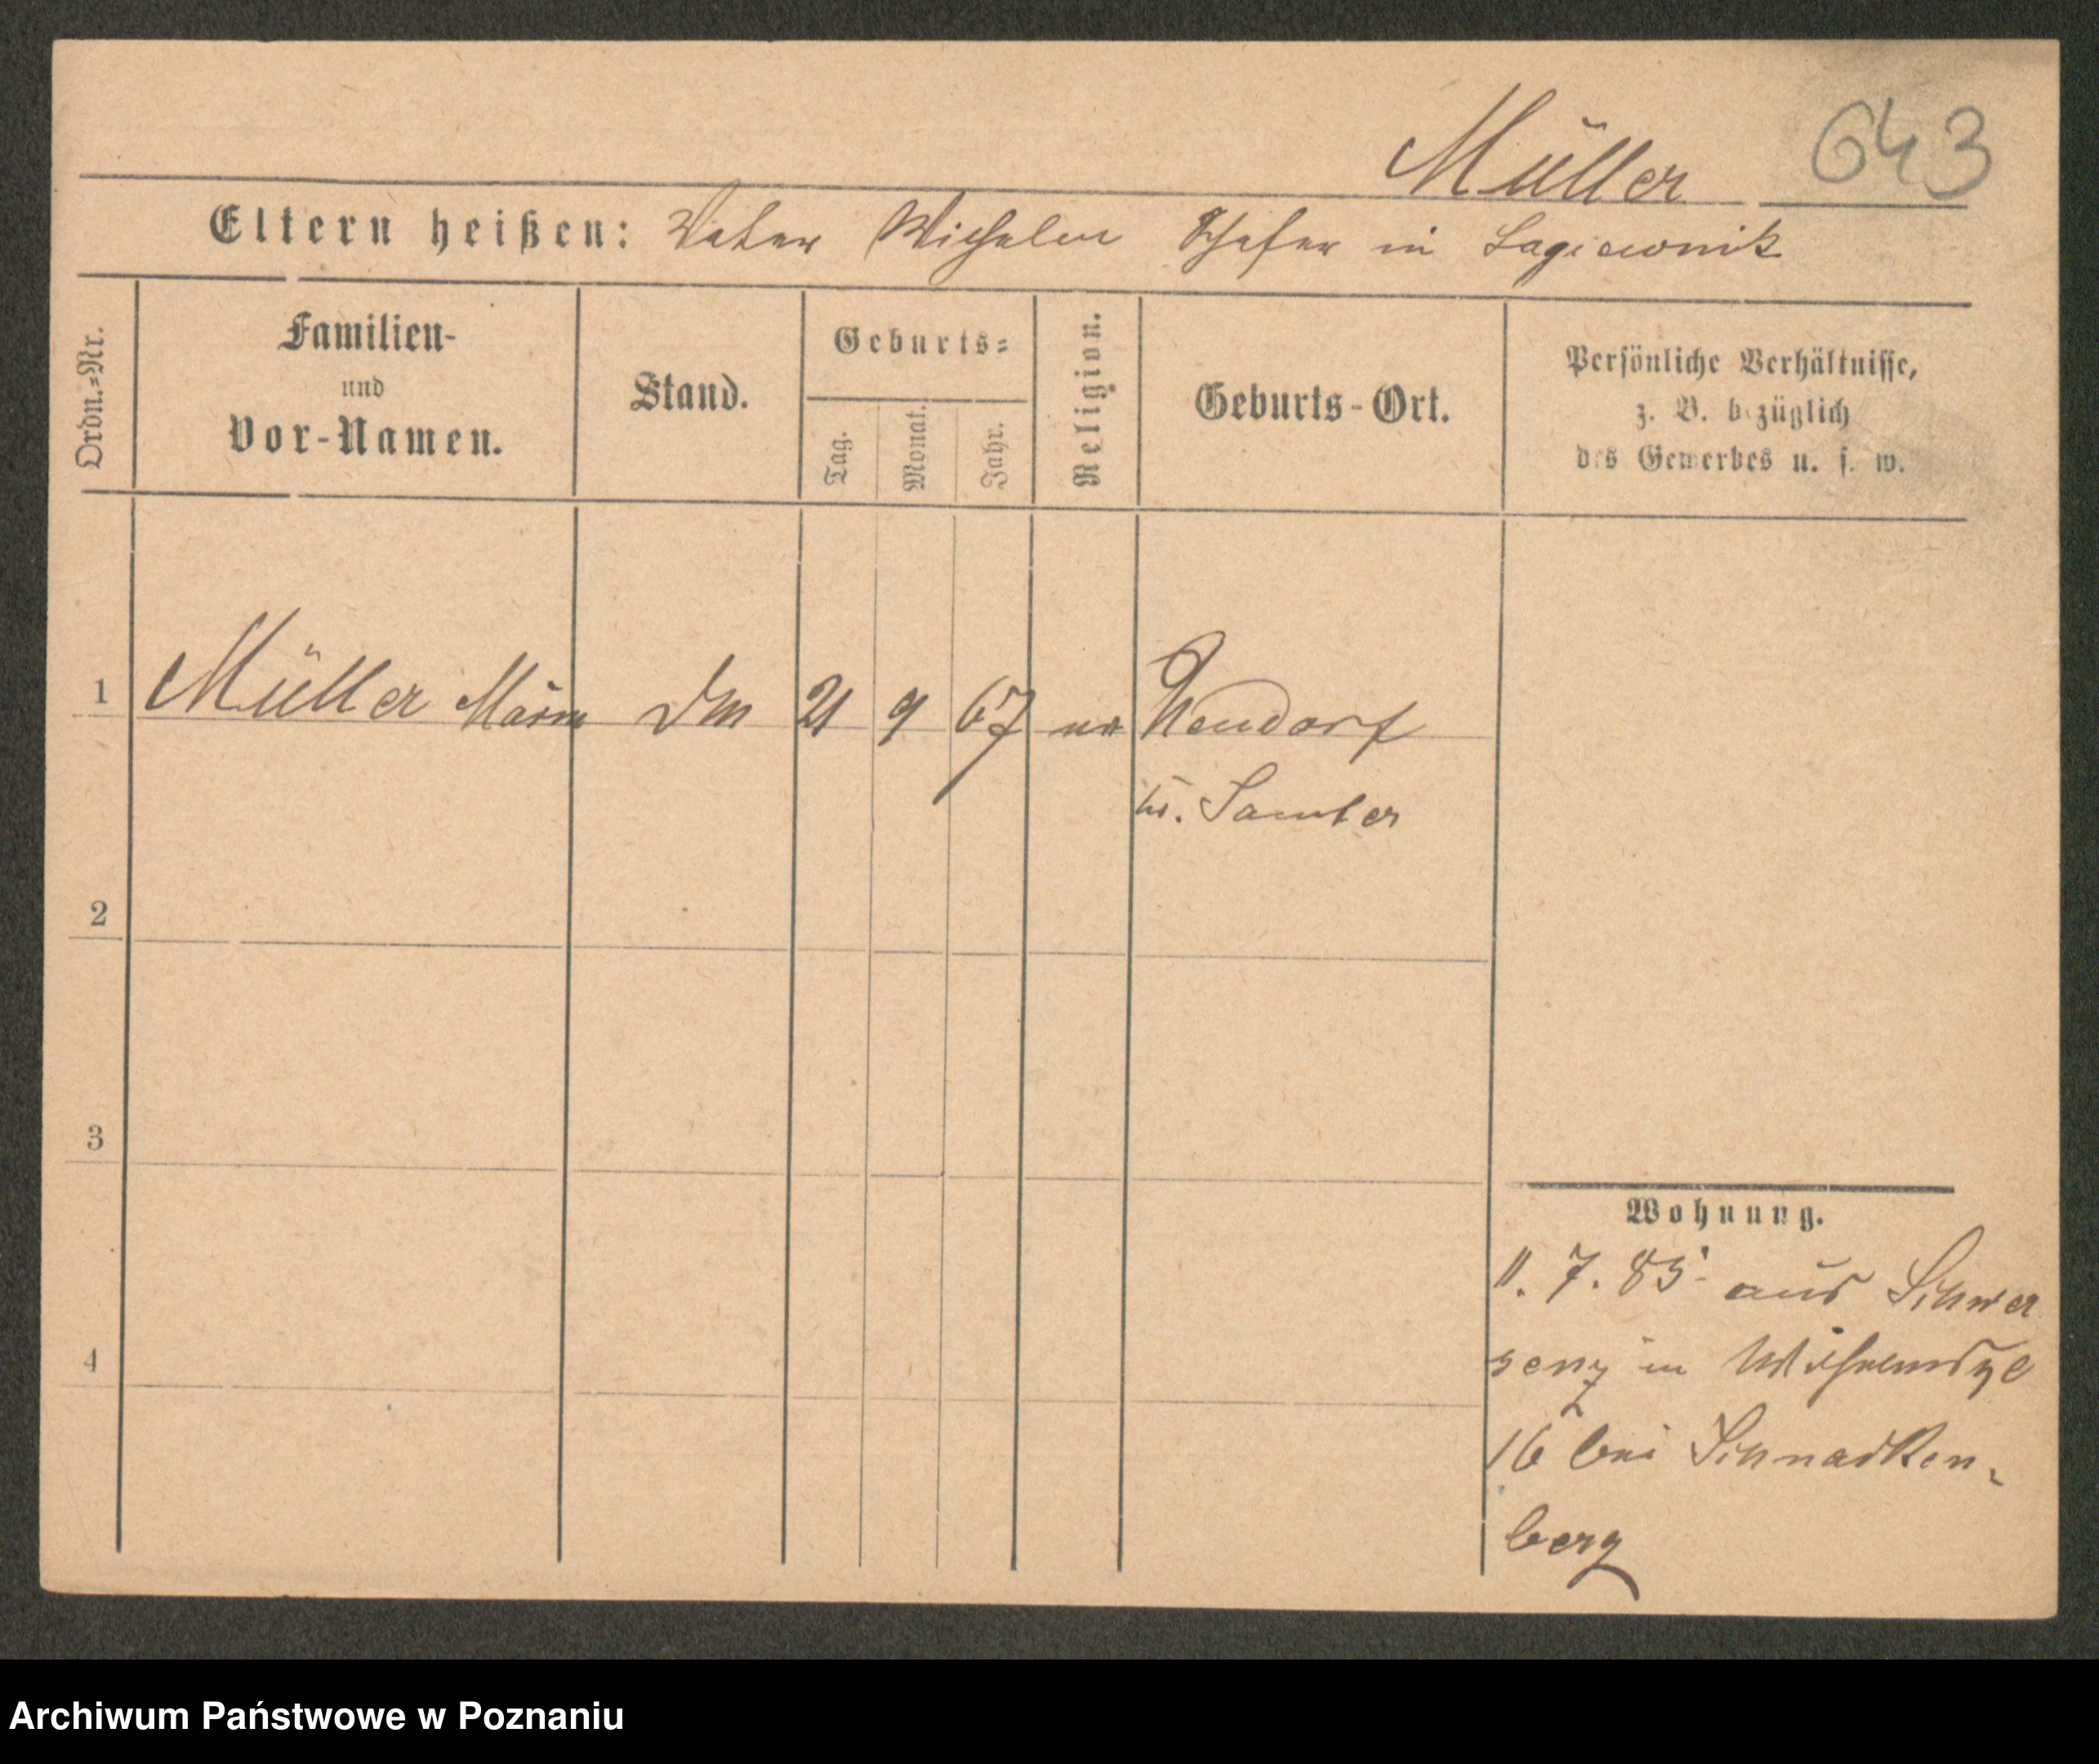 Müller 643
Eltern heißen: Vater Wilhelm Schäfer in Lagiewnik
Ordn.=Nr.
Familien-
und
Vor-Namen.
Stand.
Geburts=
Tag.
Monat.
Jahr.
Religion.
Geburts-Ort.
Persönliche Verhältnisse,
z. B. bezüglich
des Gewerbes u. s. w.
1 Müller Marie Dm 21 9 67 Neudorf
Kr. Samter
2
3
4
Wohnung.
11. 7. 85 aus Schwer
senz in Wilhelmstr
16 bei Schnacken-
berg
Archiwum Państwowe w Poznaniu